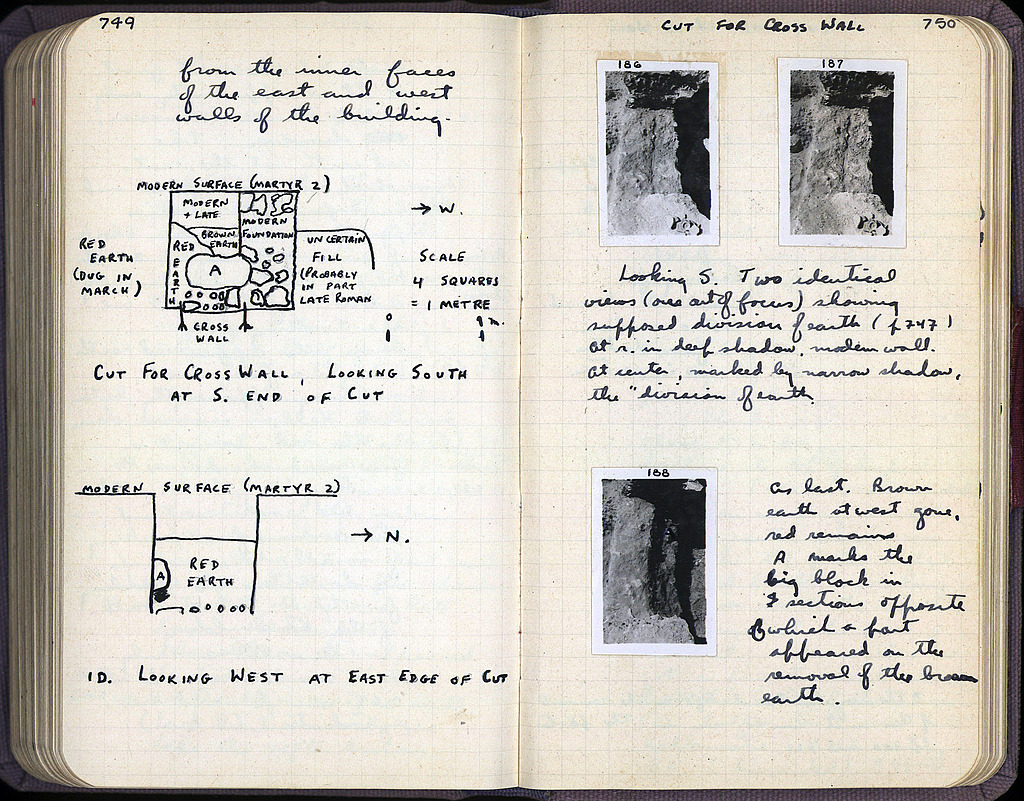 749
from the inner faces
of the east and west
walls of the building.
MODERN SURFACE (MARTYR 2)
MODERN
+ LATE
MODERN
FOUNDATION
BROWN
EARTH
RED
EARTH
A
RED
EARTH
(DUG IN
MARCH)
UNCERTAIN
FILL
(PROBABLY
IN PART
LATE ROMAN
→ W.
SCALE
4 SQUARES
= 1 METRE
0 1 m.
CROSS
WALL
CUT FOR CROSS WALL, LOOKING SOUTH
AT S. END OF CUT
MODERN SURFACE (MARTYR 2)
→ N.
RED
EARTH
A
ID. LOOKING WEST AT EAST EDGE OF CUT
CUT FOR CROSS WALL
750
186
187
Looking S. Two identical
views (one out of focus) showing
supposed division of earth (p 747)
At r. in deep shadow, modern wall.
At center, marked by narrow shadow,
the "division of earth.
188
As last. Brown
earth at west gone,
red remains
A marks the
big block in
sections opposite
of which a part
appeared on the
removal of the brown
earth.